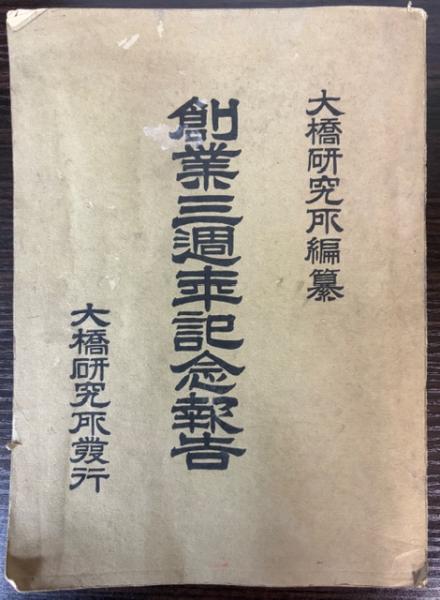 大橋研究所編纂
創業三週年記念報告
大橋研究所發行